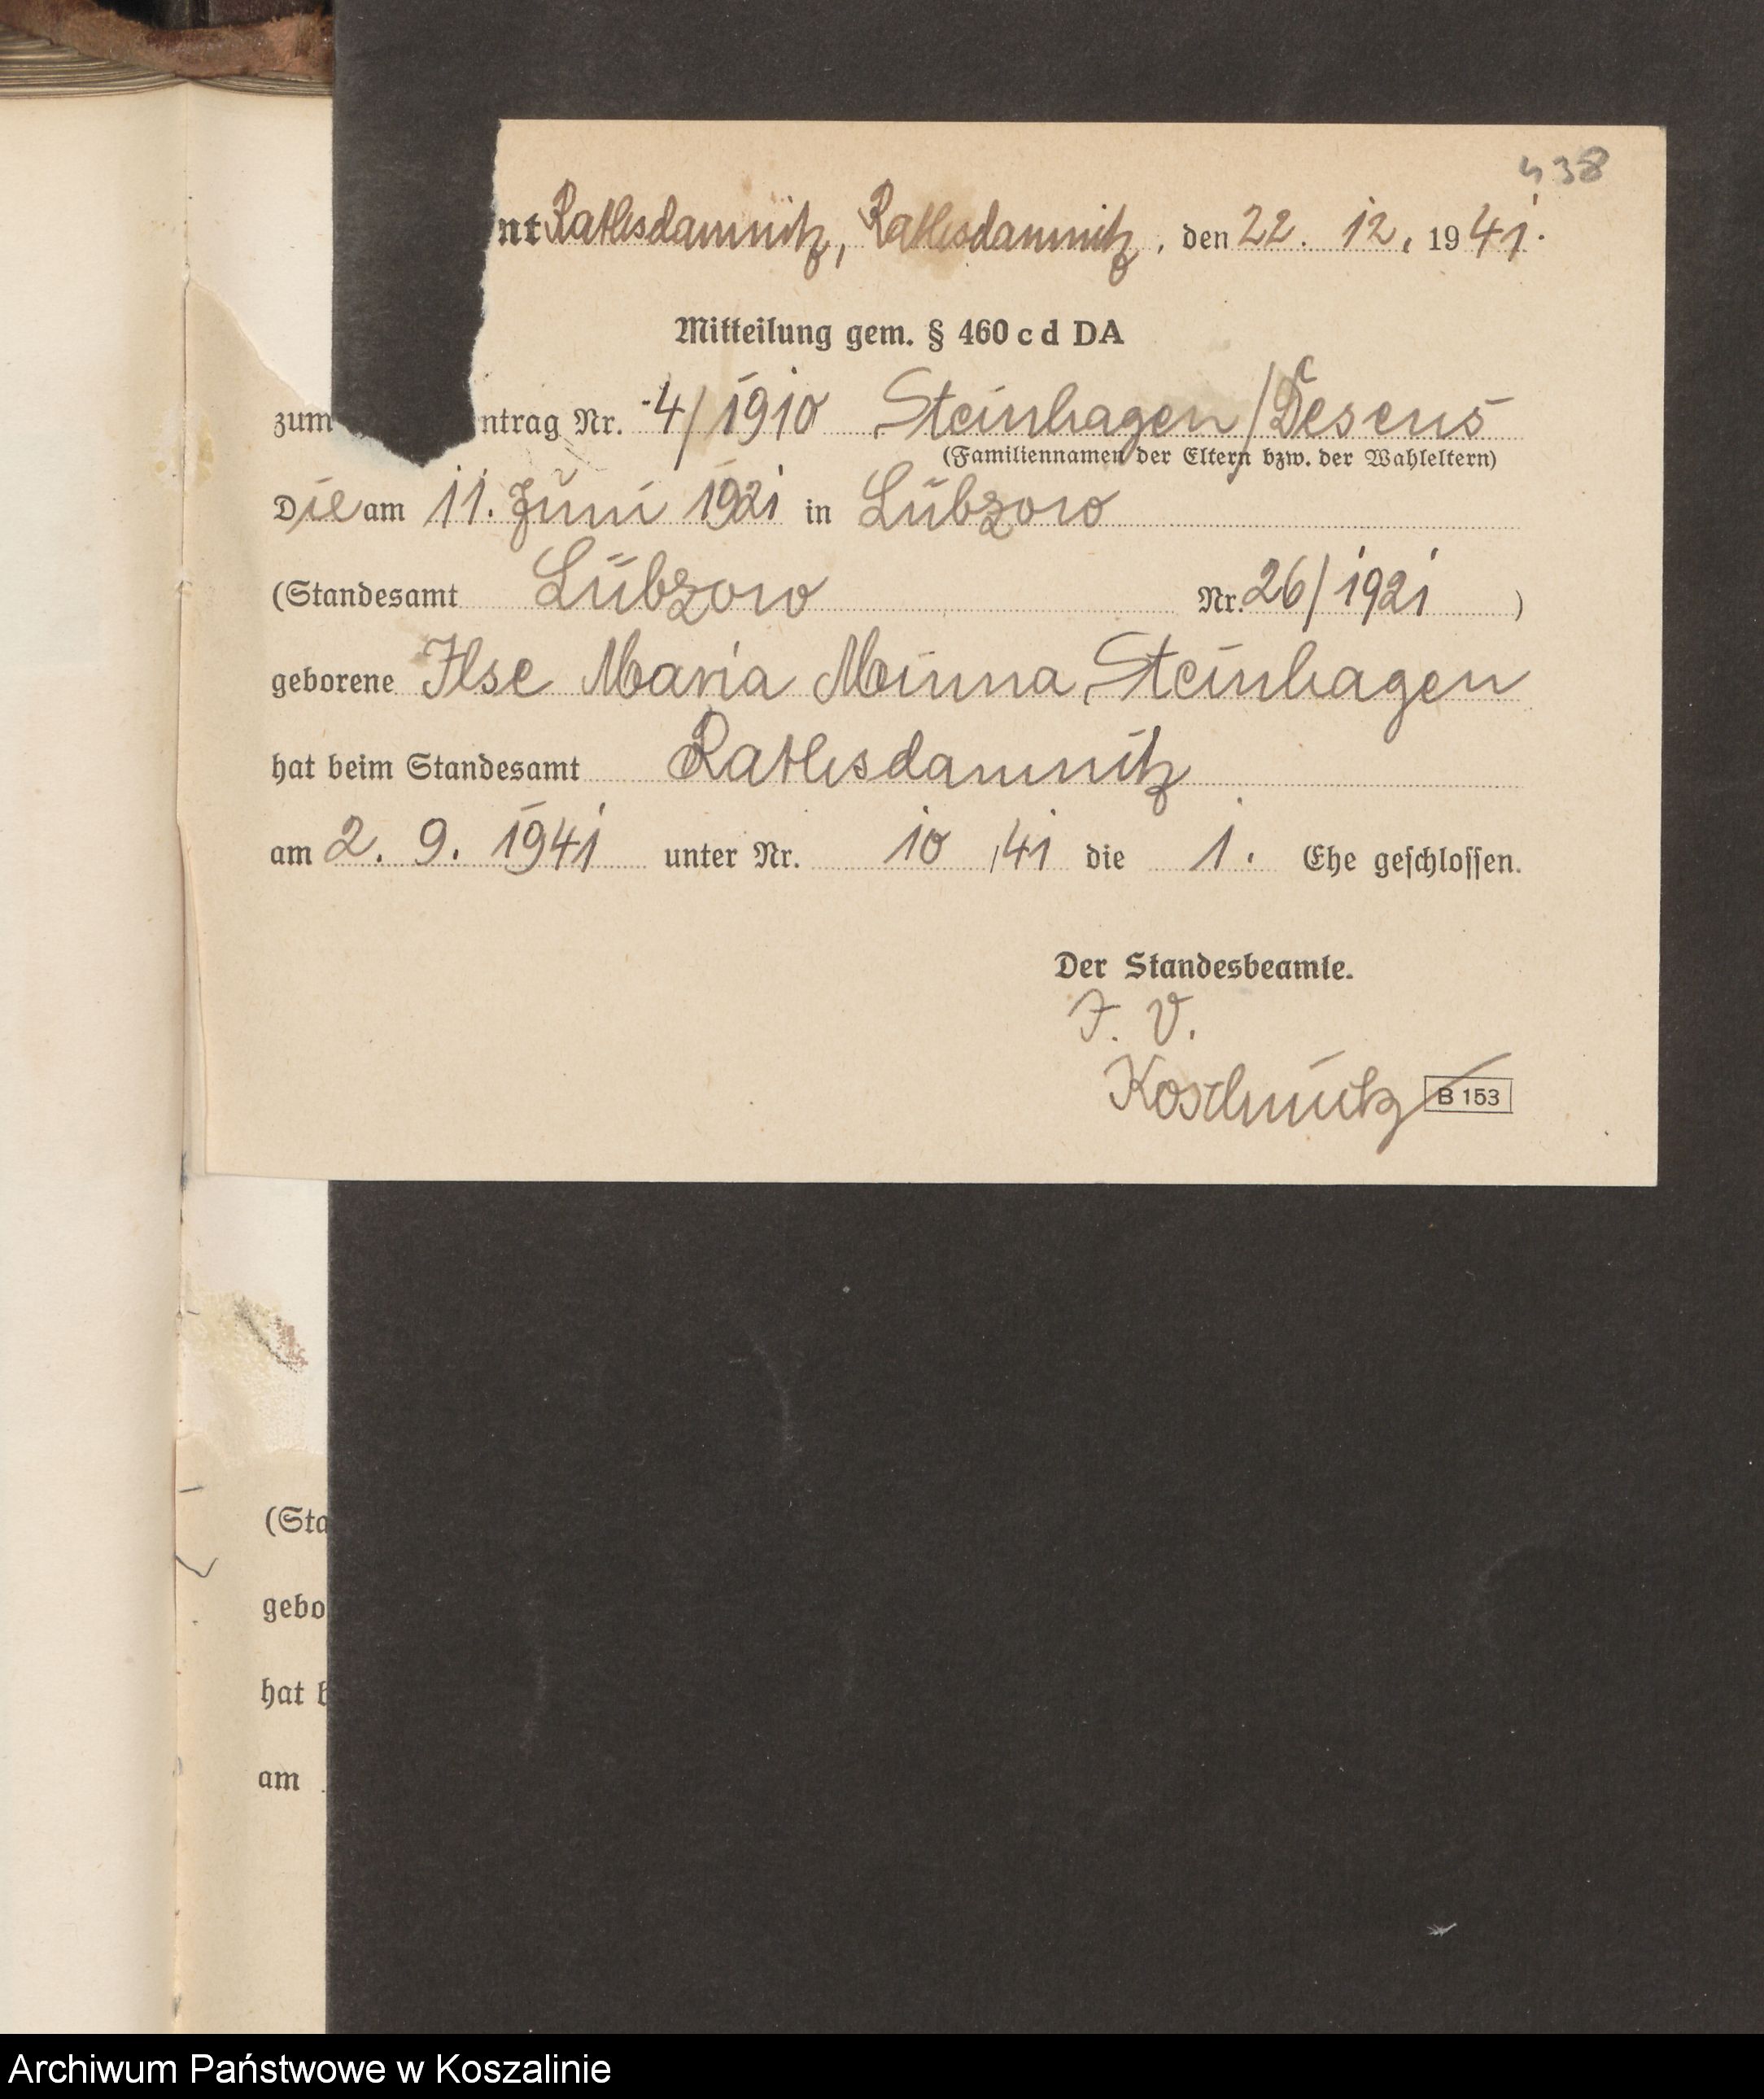 438
nt Rathsdamnitz, Rathsdamnitz, den 22. 12. 1941.
Mitteilung gem. § 460 c d DA
zum ntrag Nr. 4/1910 Steinhagen/Desens
(Familiennamen der Eltern bzw. der Wahleltern)
Die am 11. Juni 1921 in Lübzow
(Standesamt Lübzow Nr. 26/1921 )
geborene Ilse Maria Minna Steinhagen
hat beim Standesamt Rathsdamnitz
am 2. 9. 1941 unter Nr. 10 /41 die 1. Ehe geschlossen.
Der Standesbeamte.
J. V.
Koschnitz B 153
(Sta
gebo
hat b
am
Archiwum Państwowe w Koszalinie